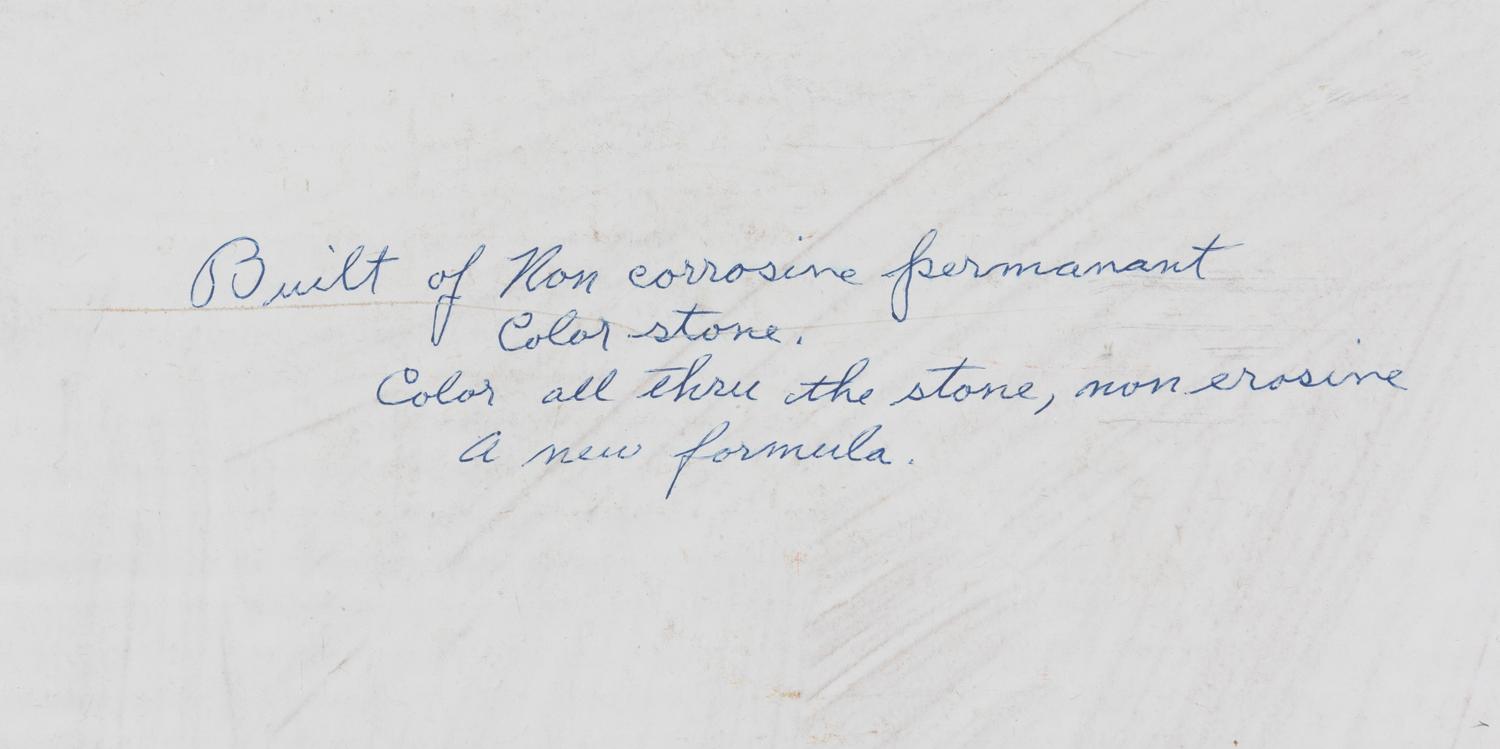 Built of Non corrosine permanant
Color stone.
Color all thru the stone, non erosine
A new formula.